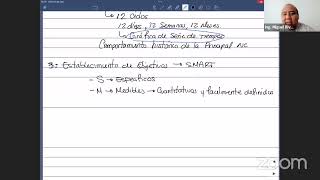 ↳ 12 Datos
12 días, 12 Semanas, 12 Meses
↳ Gráfica de Serie de Tiempo
Comportamiento histórico de la Principal
3: Establecimiento de Objetivos → SMART
- S → Específicos
- M → Medibles → Cuantitativos y facilmente definidos
zoom